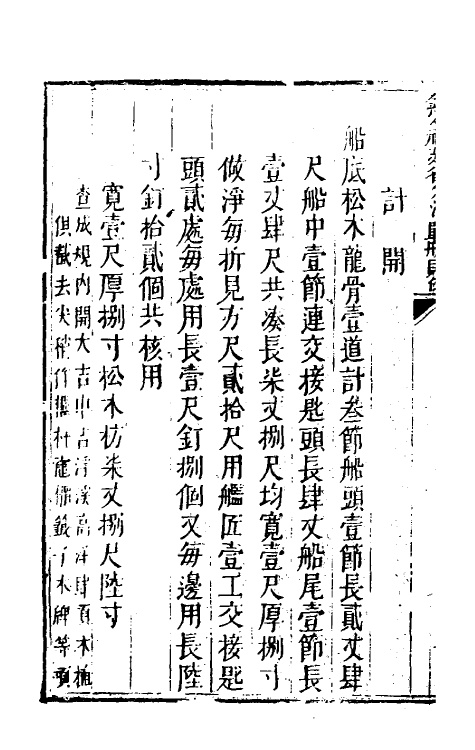 計開
船底松木龍骨壹道計叁節船頭壹節長貳丈肆
尺船中壹節連交接匙頭長肆丈船尾壹節長
壹丈肆尺共湊長柒丈捌尺均寬壹尺厚捌寸
做淨每折見方尺貳拾尺用艦匠壹工交接匙
頭貳處每處用長壹尺釘捌個又每邊用長陸
寸釘拾貳個共核用
寬壹尺厚捌寸松木枋柒丈捌尺陸寸
查成規內開大吉中吉淸溪高洋肆頁木植
但截去尖稍作檣杆鹿儒鈸丁木碑等項